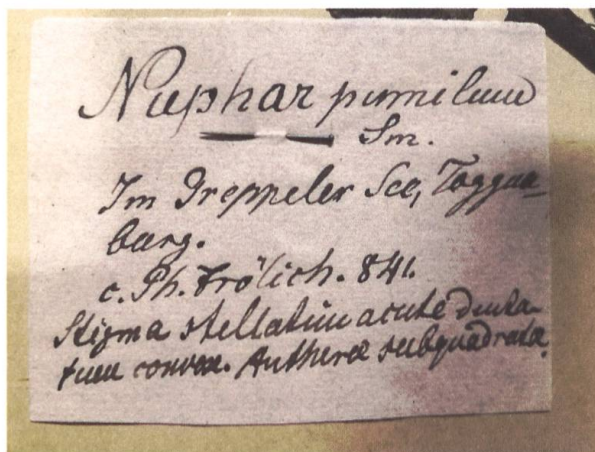 Nuphar pumilum
Sm.
Im Greppeler See, Toggen-
burg.
c. Ph. Frölich. 841.
Stigma stellatum acute denta-
tum convex. Antherae subquadratae.